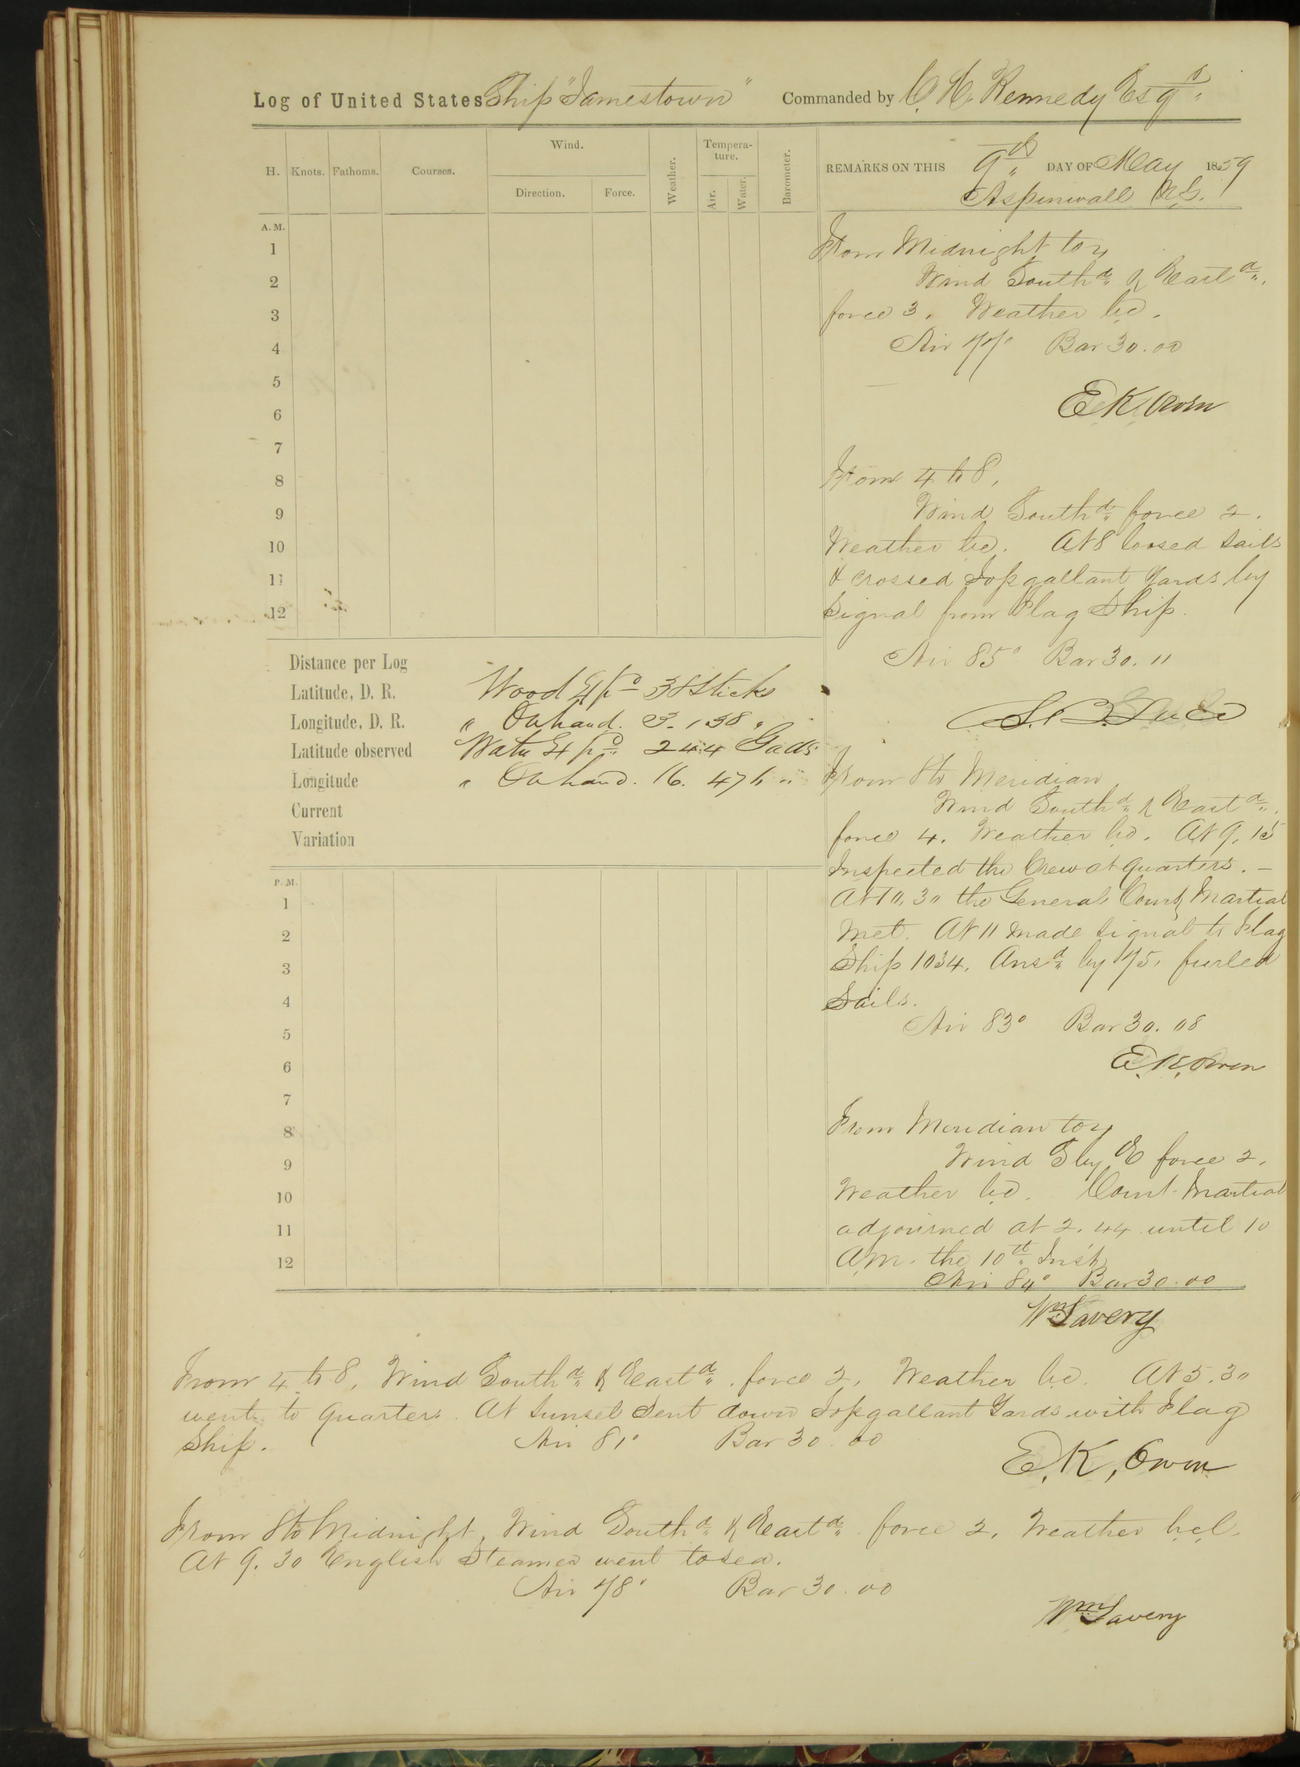 Log of United States Ship "Jamestown" Commanded by C. H. Kennedy Esqr.
H. Knots. Fathoms. Courses. Wind. Direction. Force. Weather. Tempera-ture. Air. Water. Barometer.
REMARKS ON THIS 9th DAY OF May 1859
Aspinwall N.G.
A. M.
1
2
3
4
5
6
7
8
9
10
11
12
From Midnight to 4
Wind Southd & Eastd,
force 3. Weather bc.
Air 77° Bar 30.00
E K Owen
From 4 to 8,
Wind Southd force 2.
Weather bc. At 8 loosed sails
& crossed Topgallant Yards by
signal from Flag Ship.
Air 85° Bar 30.11
S. B. Luce
Distance per Log
Latitude, D. R. Wood Expd 38 Sticks
Longitude, D. R. " On hand. 3.138 "
Latitude observed Water Expd 244 Galls
Longitude " On hand. 16.476 "
Current
Variation
From 8 to Meridian
Wind Southd & Eastd.
force 4. Weather bc. At 9.15
Inspected the Crew at quarters. –
At 10.30 the General Court Martial
met. At 11 made signal to Flag
Ship 1034. Ansd by 75. furled
Sails.
Air 83° Bar 30.08
E. K. Owen
P. M.
1
2
3
4
5
6
7
8
9
10
11
12
From Meridian to 4
Wind S by E force 2.
Weather bc. Court Martial
adjourned at 2.44 until 10
A.M. the 10th Inst.
Air 84° Bar 30.00
Wm Savery
From 4 to 8, Wind Southd & Eastd. force 2, Weather bc. At 5.30
went to quarters. At sunset sent down Topgallant Yards with Flag
Ship. Air 81° Bar 30.00
E. K. Owen
From 8 to Midnight, Wind Southd & Eastd force 2, Weather bcl.
At 9.30 English Steamer went to sea.
Air 78° Bar 30.00
Wm Savery